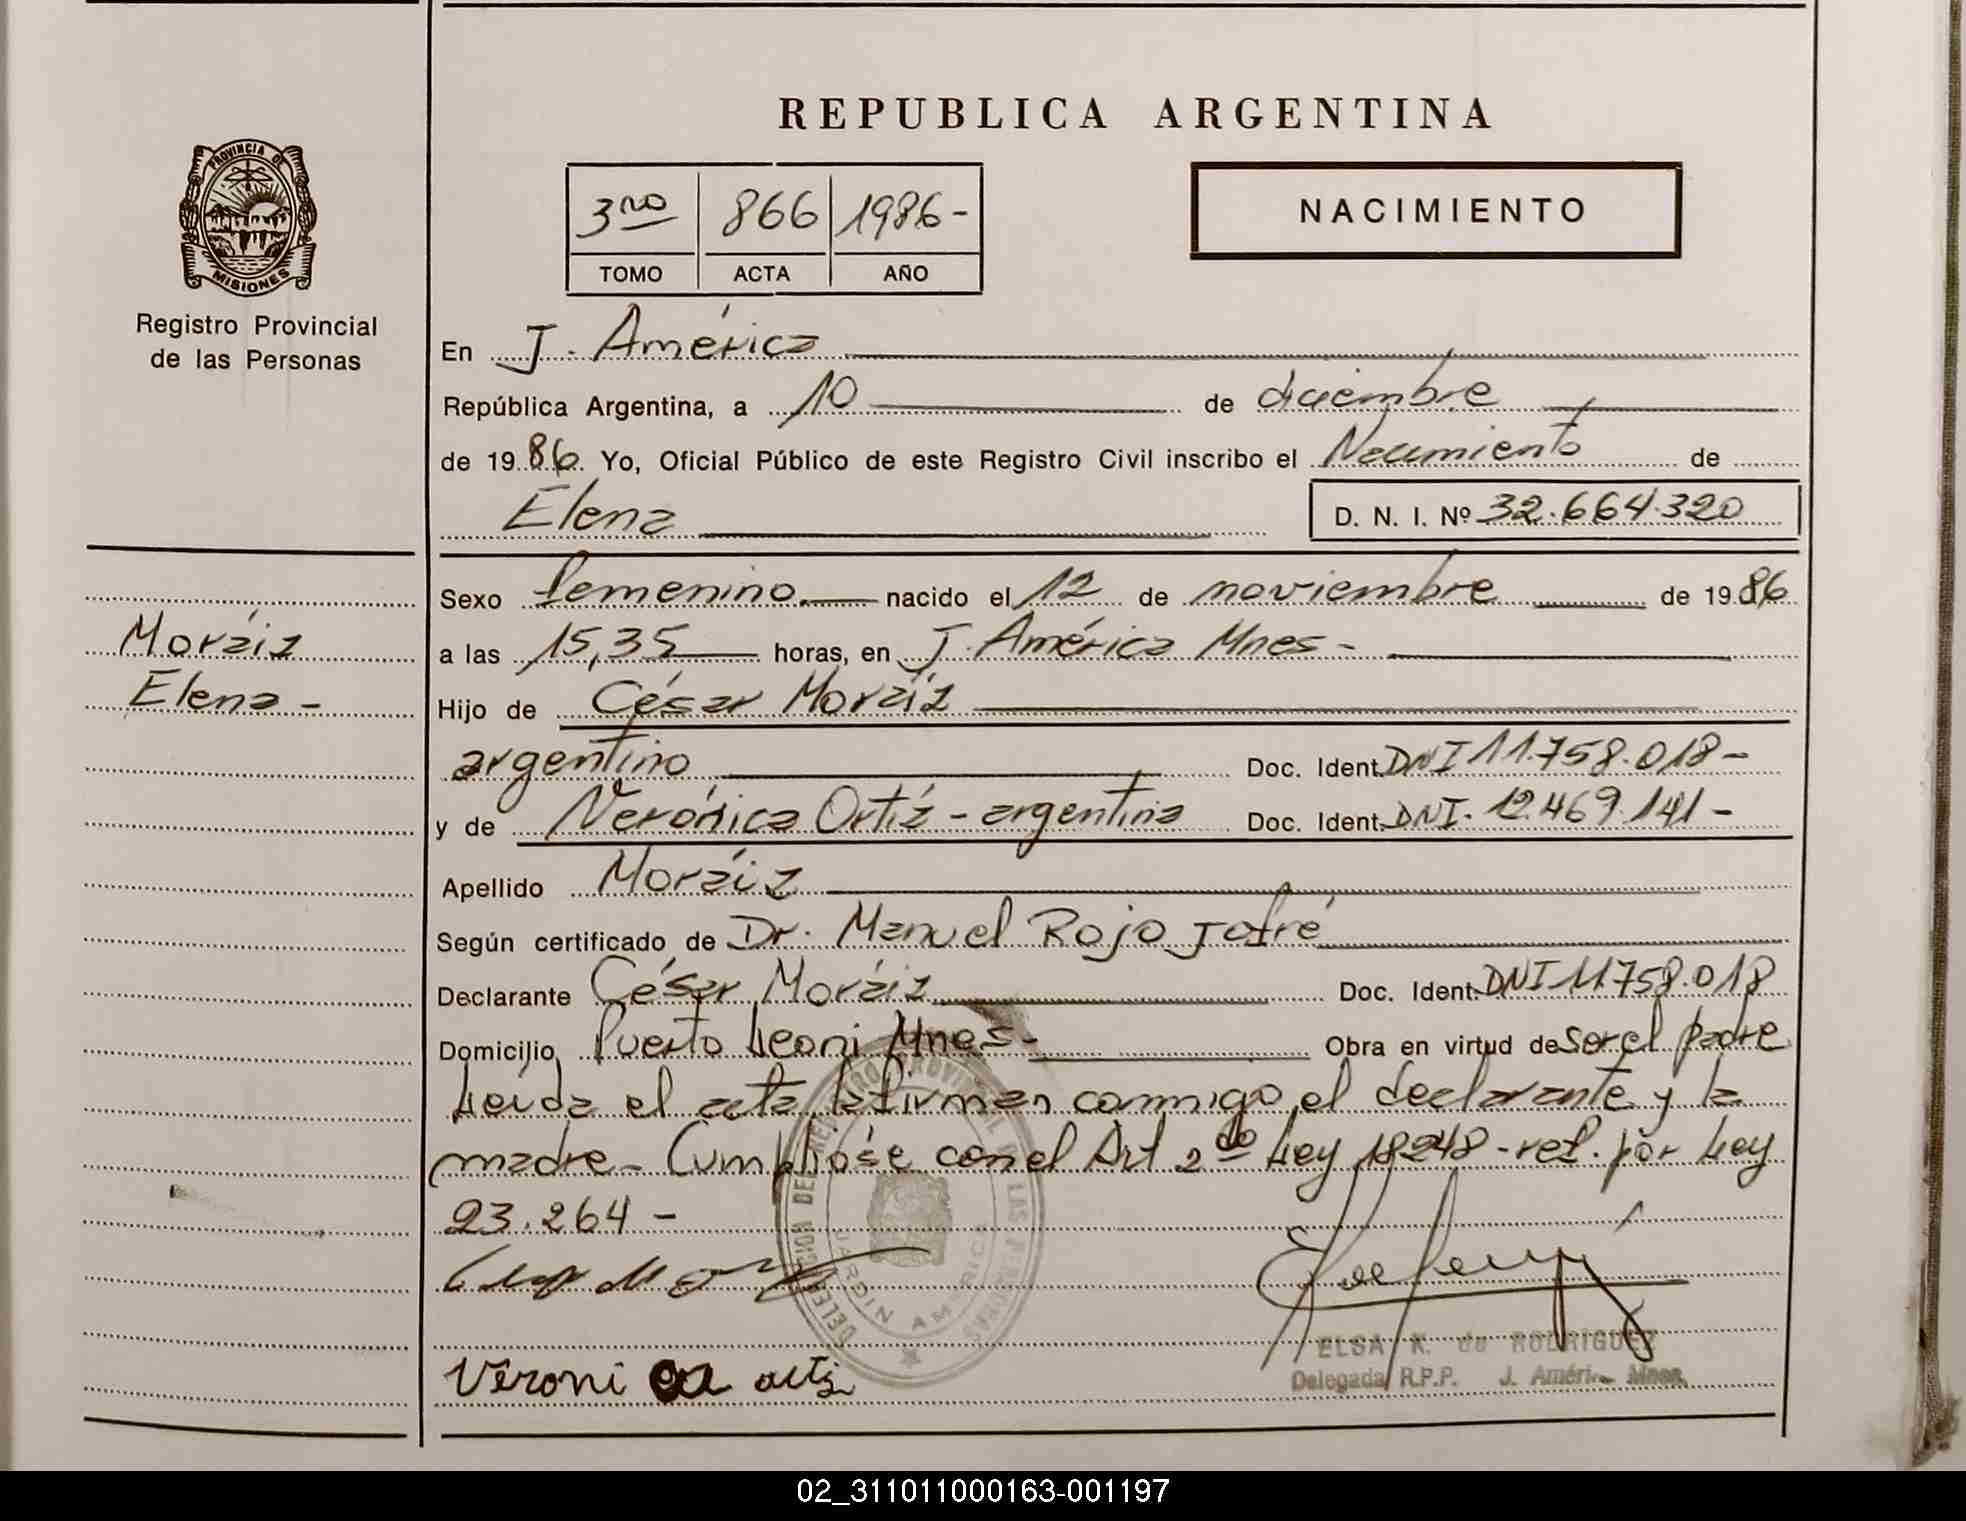 REPUBLICA ARGENTINA
PROVINCIA DE
MISIONES
Registro Provincial
de las Personas
3ro 866 1986-
TOMO ACTA AÑO
NACIMIENTO
En J. América
República Argentina, a 10 de diciembre
de 1986 Yo, Oficial Público de este Registro Civil inscribo el Nacimiento de
Elena D. N. I. Nº 32.664.320
Moráiz
Elena -
Sexo femenino nacido el 12 de noviembre de 1986
a las 15,35 horas, en J. América Mnes -
Hijo de César Moráiz
argentino Doc. Ident. DNI 11.758.018 -
y de Verónica Ortíz - argentina Doc. Ident. DNI. 12.469.141 -
Apellido Moráiz
Según certificado de Dr. Manuel Rojo Jofré
Declarante César Moráiz Doc. Ident. DNI 11.758.018
Domicilio Puerto Leoni Mnes - Obra en virtud de ser el padre
Leida el acta, la firman conmigo, el declarante y la
madre - Cumplióse con el Art 2do Ley 18248 - ref. por Ley
23.264 -
DELEGACION DEL REGISTRO PROVINCIAL DE LAS PERSONAS
JARDIN AMERICA
ELSA K. de RODRIGUEZ
Delegada R.P.P. J. América Mnes.
Veroni ca
02_311011000163-001197